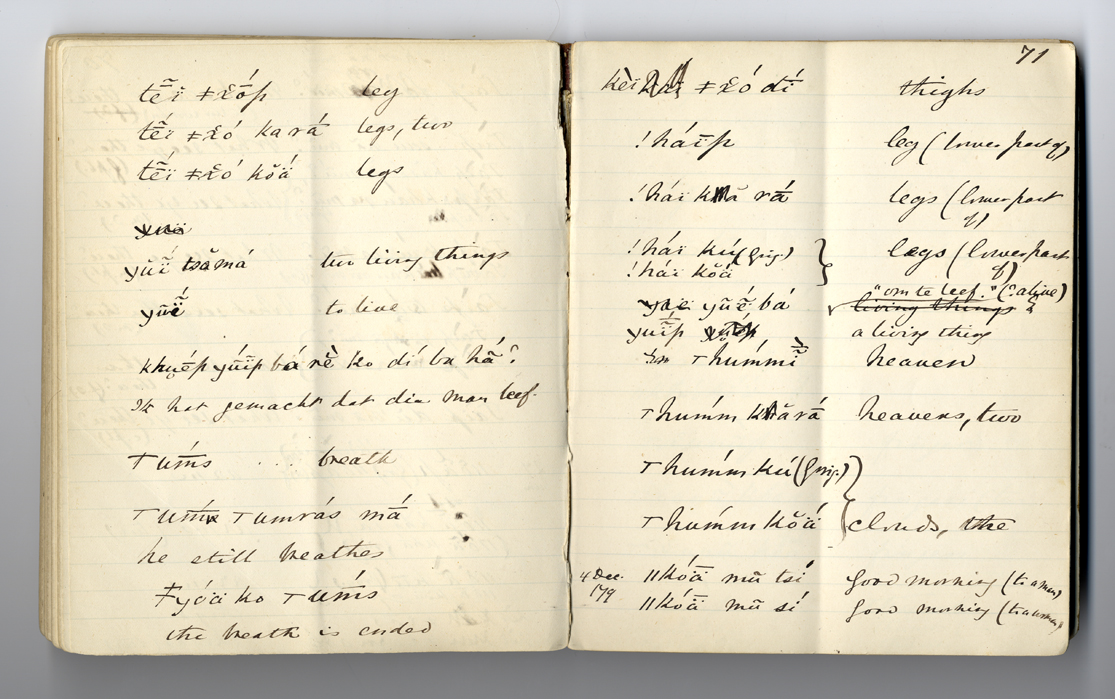 tḗï ǂx̆óp leg
tḗï ǂx̆ó kará legs, two
tḗï ǂx̆ó kŏ́ä legs
yūï tsămá two living things
yūḗ to live
khuép yúïp bá rè ko dí ba hã́?
Ik het gemacht dat die man leef.
ꞱTum̄́s . . . breath
Tum̄́ Tumrás má
he still breathes
ǂyóä ko Tum̄́s
the breath is ended
71
kèï ǂx̆ó dí thighs
!háïp leg (lower part of)
!háï kă rá legs (lower part of)
!háï kú (Griq.)
!háï kŏ́ä legs (lower part of)
yūḗ bá "om te leef." (? alive)
living things
yuḯp a living thing
Thúmmĩ̀ heaven
Thúm̄m kărá heavens, two
Thúm̄m kú (Griq.)
Thúm̄m kŏ́ä clouds, the
4 Dec. /79 ǁkóä mũ tsí good morning (to a man)
ǁkóä mũ sí good morning (to a woman)